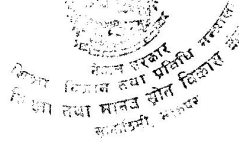 नेपाल सरकार
शिक्षा विज्ञान तथा प्रविधि मन्त्रालय
शिक्षा तथा मानव स्रोत विकास
सानोठिमी, भक्तपुर